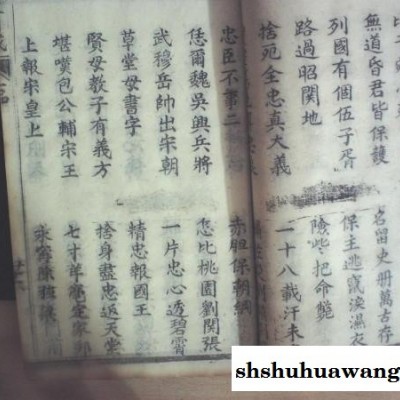 無道昏君皆保護
名留史册萬古存
列國有個伍子胥
保主逃竄淚濕衣
路過昭關地
險些把命斃
捨死全忠真大義
一十八載汗未
忠臣不事二
赤胆保朝綱
恁爾魏吳興兵將
怎比桃園劉關張
武穆岳帥出宋朝
一片忠心透碧霄
草堂母書字
精忠報國王
賢母教子有義方
捨身盡忠返天堂
堪嘆包公輔宋王
上報宋皇上
shshuhuawang